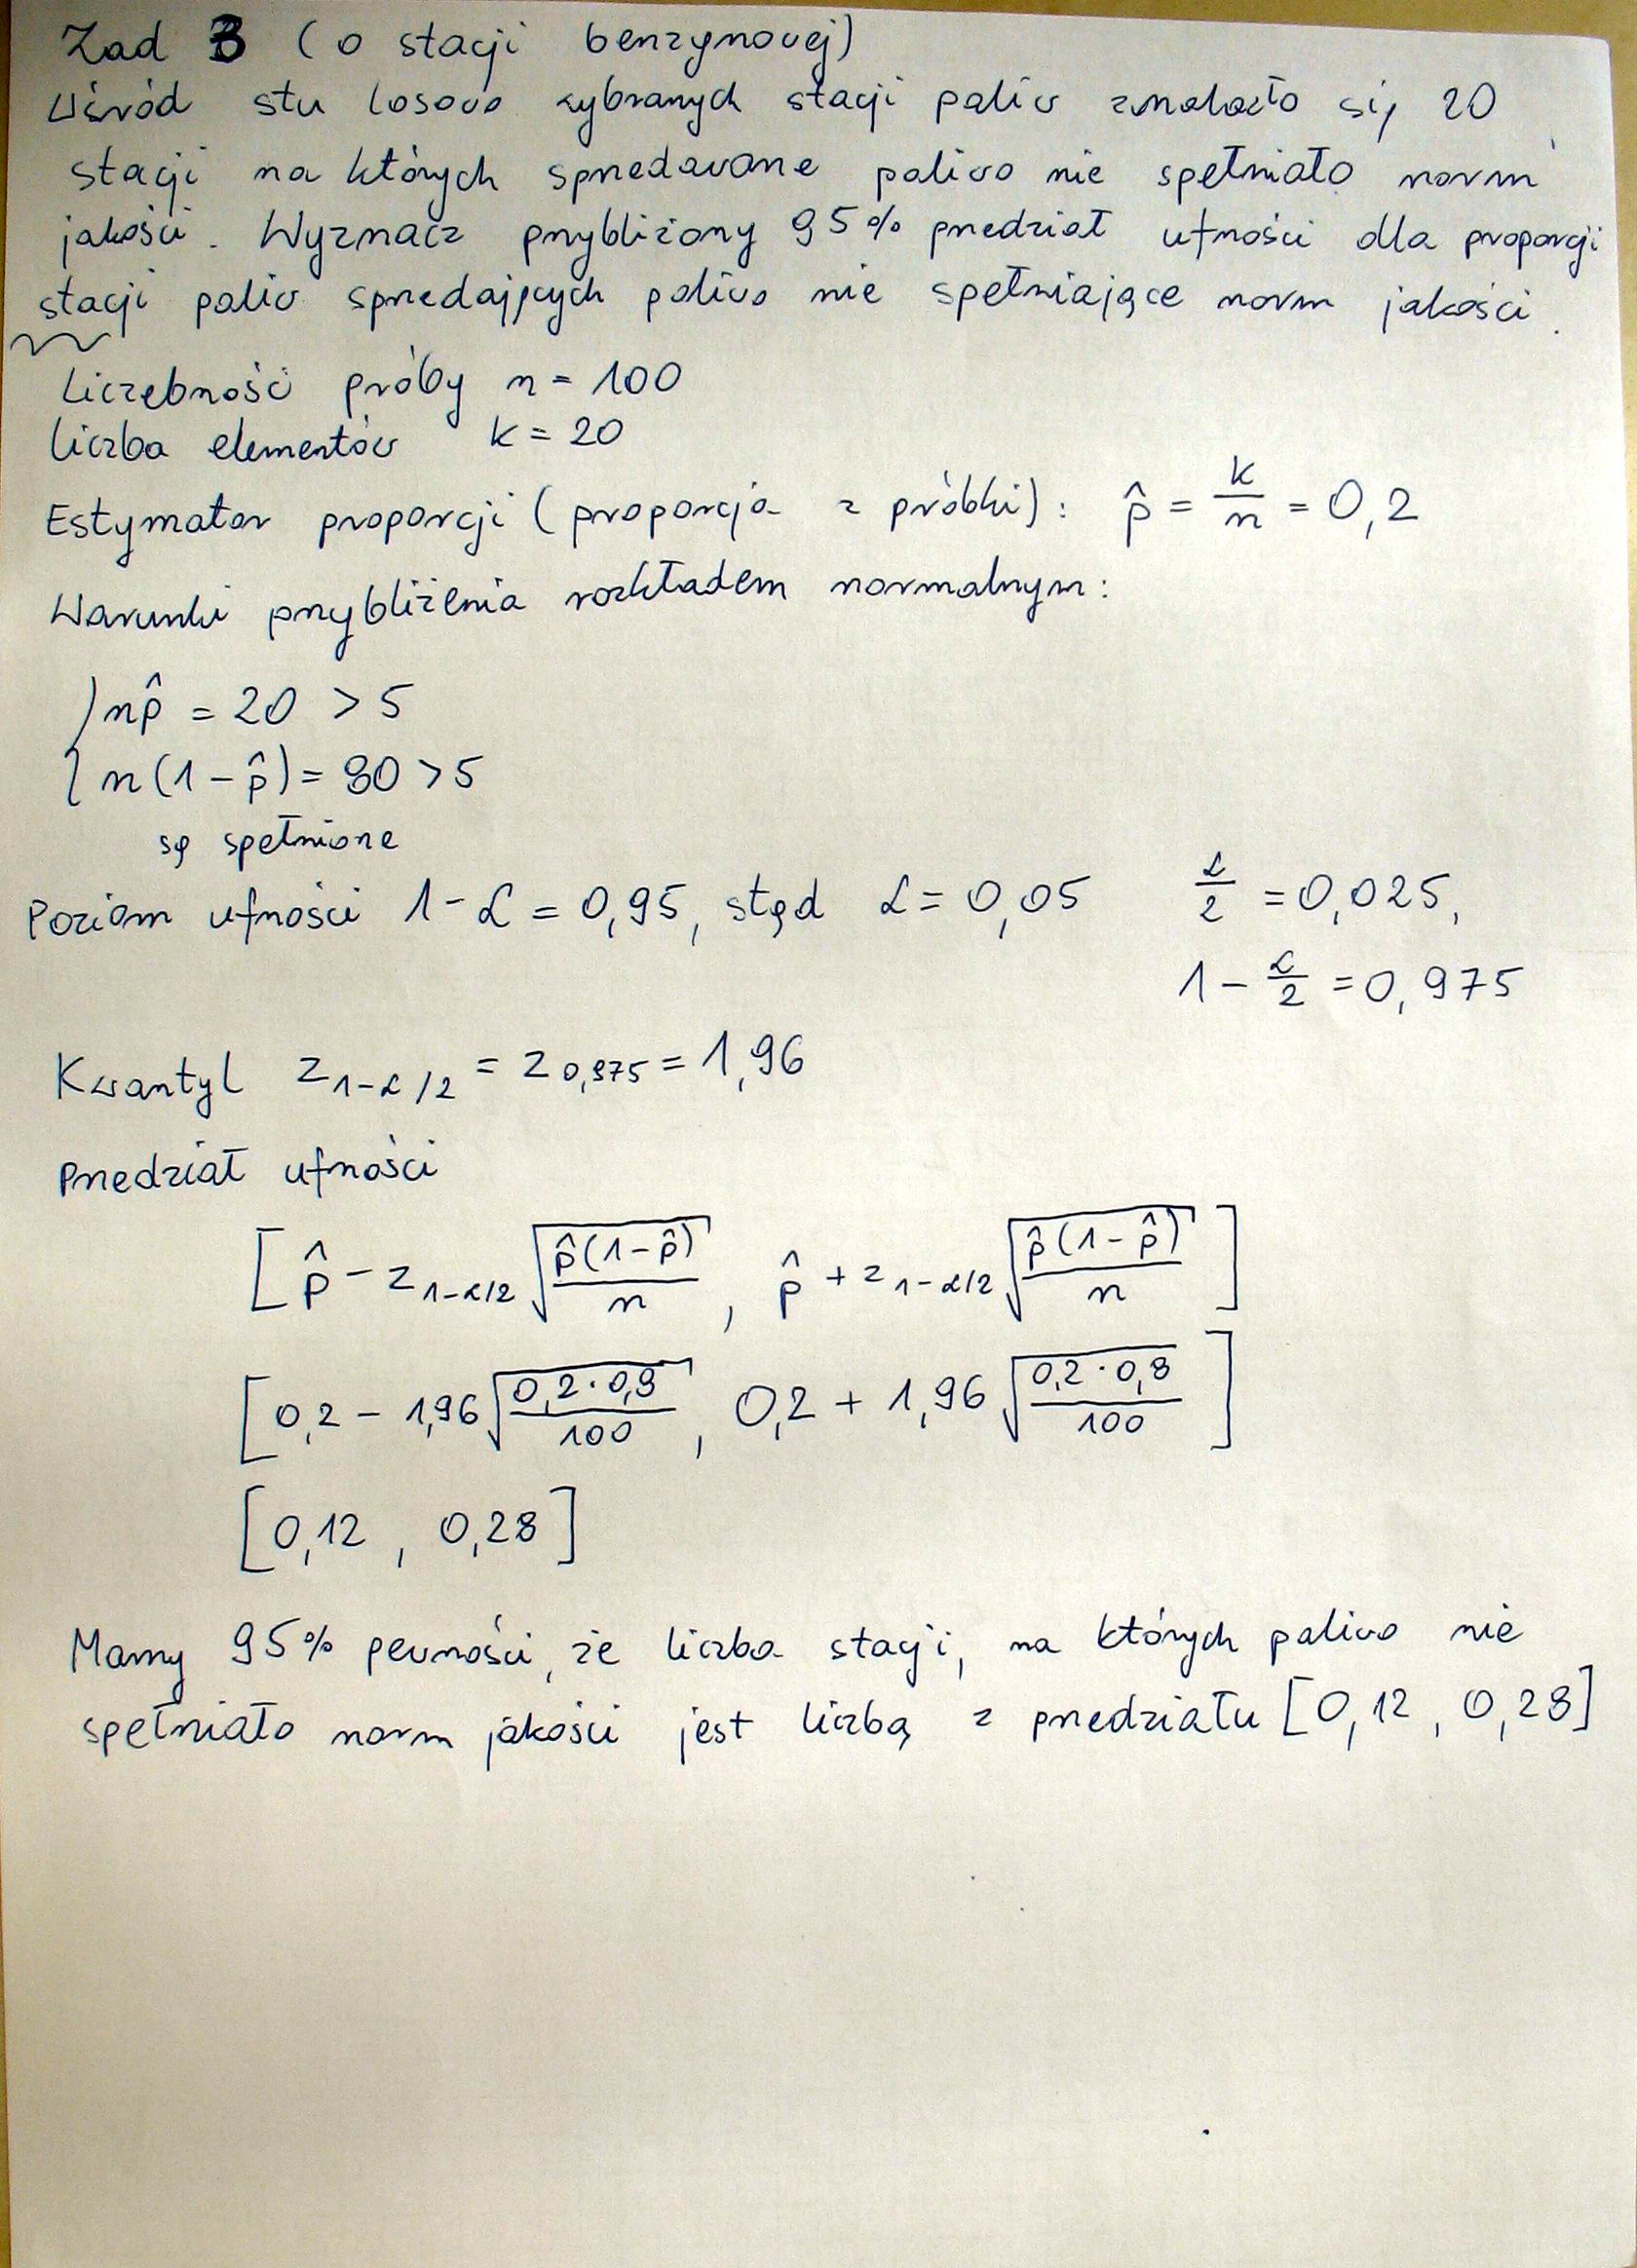 Zad 3 (o stacji benzynowej)
Wśród stu losowo wybranych stacji paliw znalazło się 20
stacji na których sprzedawane paliwo nie spełniało norm
jakości. Wyznacz przybliżony 95% przedział ufności dla proporcji
stacji paliw sprzedających paliwo nie spełniające norm jakości.
Liczebność próby n = 100
liczba elementów k = 20
Estymator proporcji (proporcja z próbki): p̂ = k/n = 0,2
Warunki przybliżenia rozkładem normalnym:
{ np̂ = 20 > 5
{ n(1-p̂) = 80 > 5
są spełnione
Poziom ufności 1-α = 0,95, stąd α = 0,05 α/2 = 0,025,
1 - α/2 = 0,975
Kwantyl z_{1-α/2} = z_{0,975} = 1,96
Przedział ufności
[ p̂ - z_{1-α/2} √(p̂(1-p̂)/n) , p̂ + z_{1-α/2} √(p̂(1-p̂)/n) ]
[ 0,2 - 1,96 √(0,2·0,8/100) , 0,2 + 1,96 √(0,2·0,8/100) ]
[0,12 , 0,28]
Mamy 95% pewności, że liczba stacji, na których paliwo nie
spełniało norm jakości jest liczbą z przedziału [0,12 , 0,28]